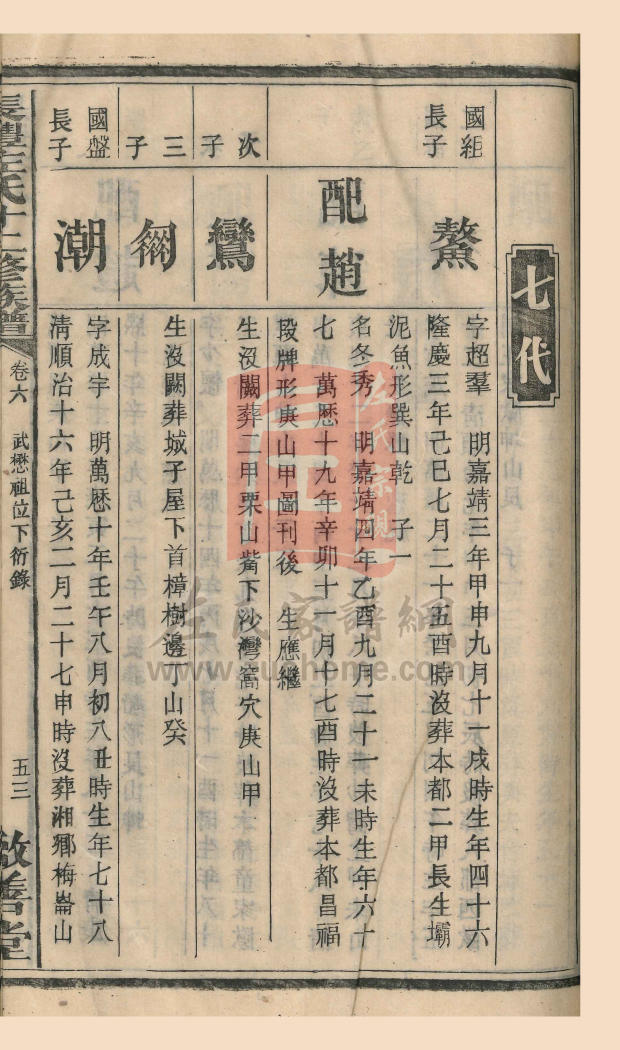 七代
國組
長子
鰲
字超羣　明嘉靖三年甲申九月十一戌時生年四十六
隆慶三年己巳七月二十五酉時沒葬本都二甲長生壩
泥魚形巽山乾　子一
配趙
名冬秀　明嘉靖四年乙酉九月二十一未時生年六十
七　萬厯十九年辛卯十一月十七酉時沒葬本都昌福
段牌形庚山甲圖刊後　生應繼
次子
鸞
生沒闕葬二甲栗山觜下沙灣窩穴庚山甲
三子
生沒闕葬城子屋下首樟樹邊丁山癸
國盤
長子
潮
字成宇　明萬厯十年壬午八月初八丑時生年七十八
清順治十六年己亥二月二十七申時沒葬湘鄉梅崙山
左氏十二修族譜
卷六
武懋祖位下衍錄
五三
敦善堂
左氏宗親
左氏家譜網